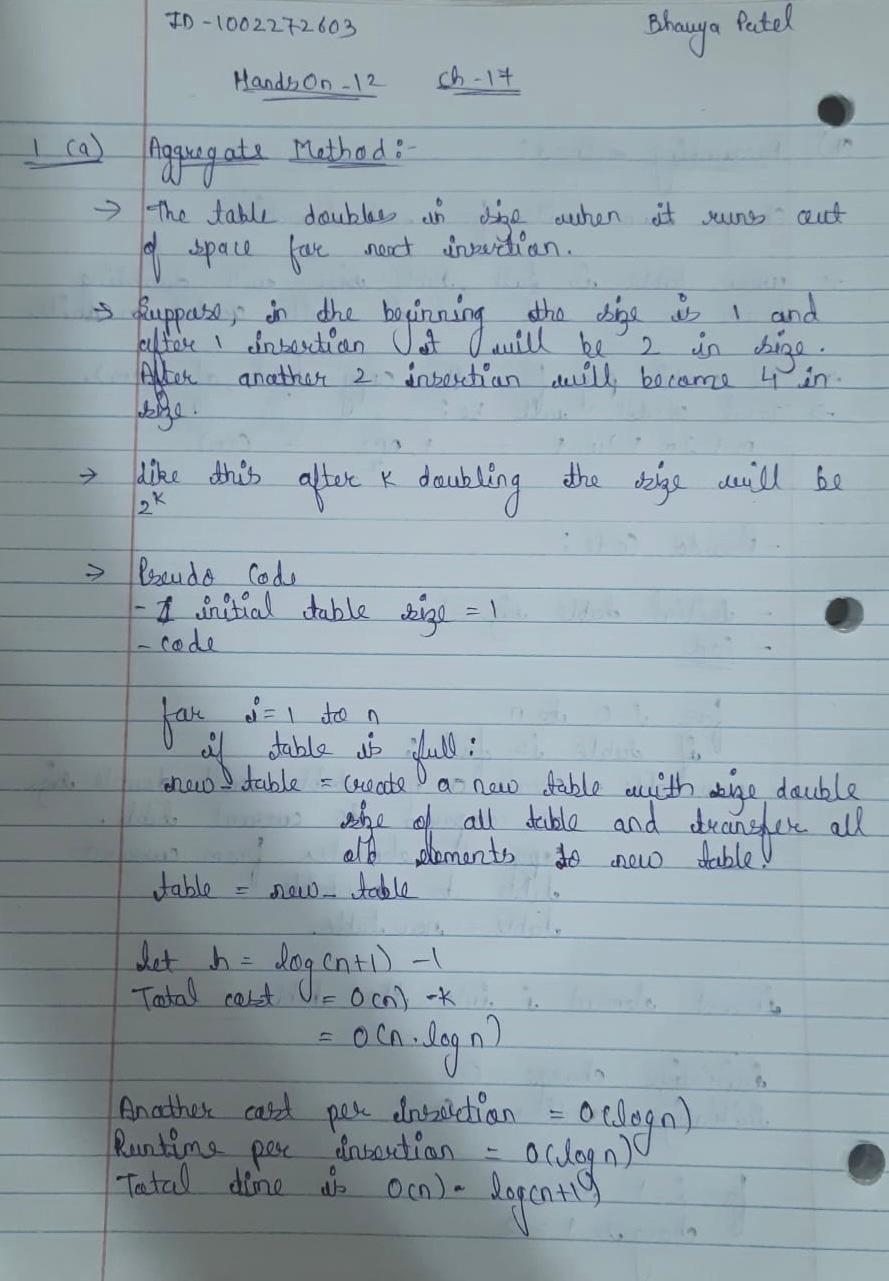 ID - 1002272603
Bhavya Patel
HandsOn - 12 Ch - 17
1 (a) Aggregate Method :-
→ The table doubles in size when it runs out
of space for next insertion.
→ Suppose, in the beginning the size is 1 and
after 1 insertion it will be 2 in size.
After another 2 insertion will become 4 in
size.
→ like this after k doubling the size will be
2^k
→ Pseudo Code
- initial table size = 1
- code
for i = 1 to n
if table is full :
new_table = create a new table with size double
size of all table and transfer all
old elements to new table.
table = new_table
let h = log(n+1) - 1
Total cost = O(n) - k
= O(n . log n)
Another cost per insertion = O(log n)
Runtime per insertion = O(log n)
Total time is O(n) - log(n+1)